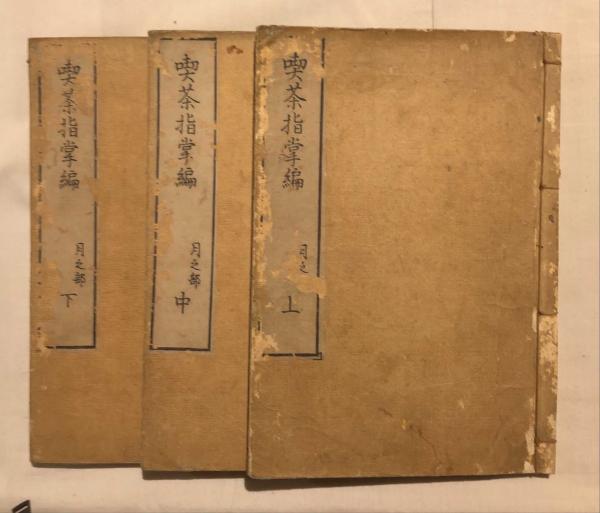 喫茶指掌編
月之
上
喫茶指掌編
月之部
中
喫茶指掌編
月之部
下